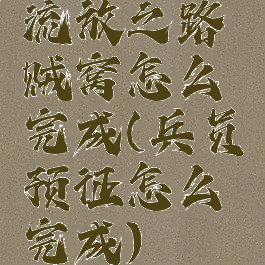 流放之路
贼窝怎么
完成(兵员
预征怎么
完成)